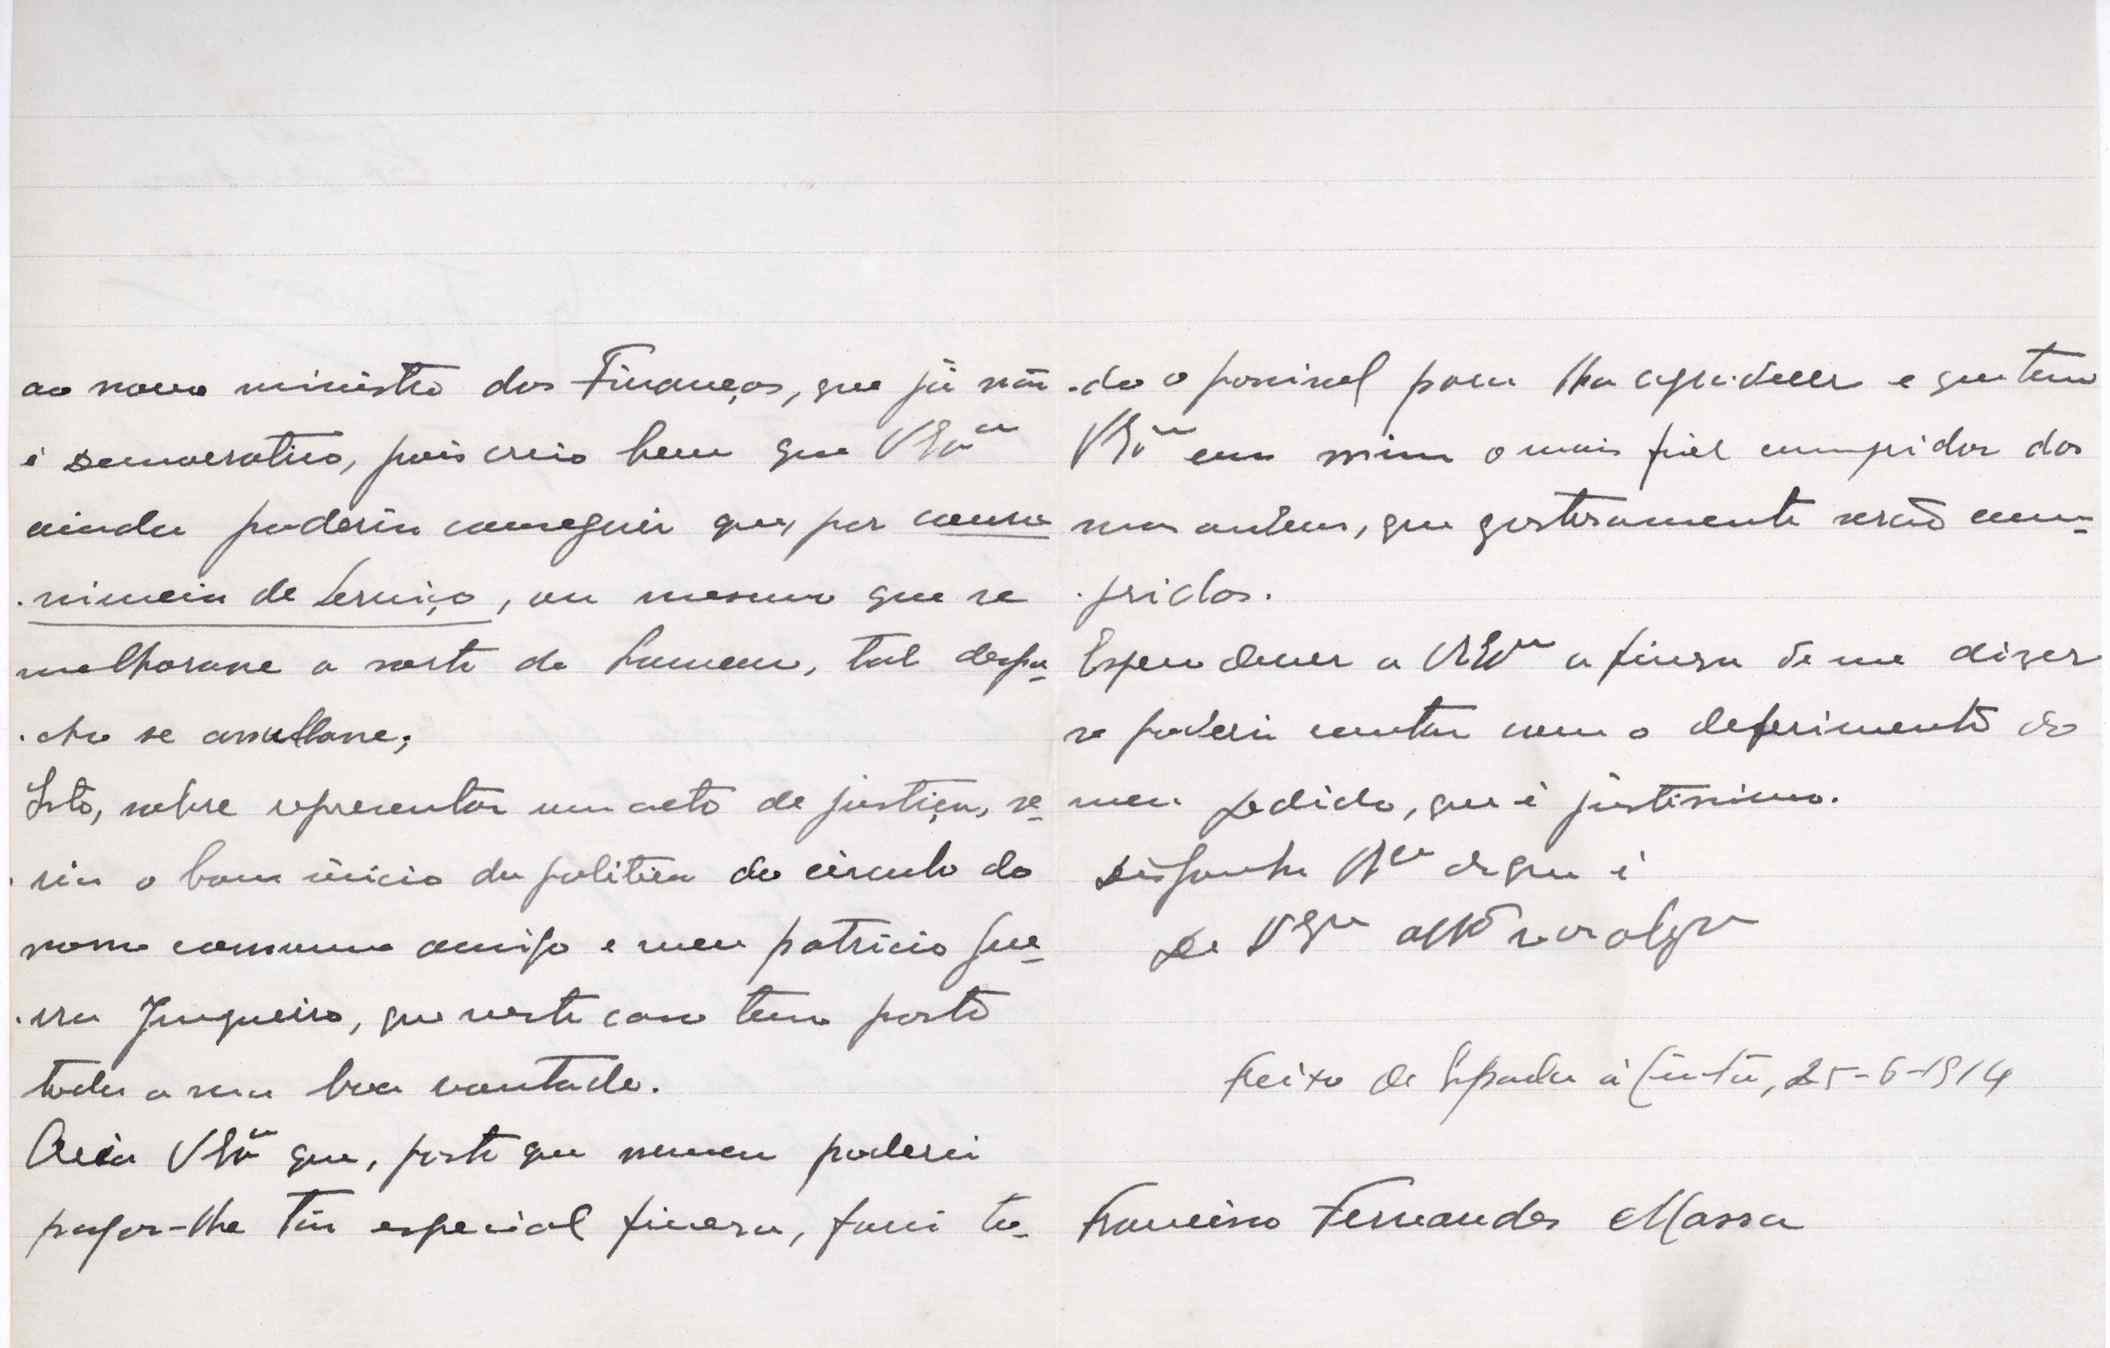 ao novo ministro das Finanças, que já não
é democratico, pois creio bem que V Exª
ainda poderia conseguir que, por conve-
niencia de Serviço, ou mesmo que se
melhorasse a sorte do homem, tal despa-
-cho se annullasse;
Isto, sobre representar um acto de justiça, se-
-ria o bom inicio da politica do circulo do
nosso commum amigo e meu patricio Gue-
-rra Junqueiro, que neste caso tem posto
toda a sua boa vontade.
Creia V Exª que, posto que nunca poderei
pagar-lhe tão especial fineza, farei tu-
-do o possivel para lha agradecer e que tem
V Exª em mim o mais fiel cumpridor das
suas ordens, que gostosamente serão cum-
-pridas.
Espero dever a V Exª a fineza de me dizer
se poderei contar com o deferimento do
meu pedido, que é justissimo.
Disponha V Exª de quem é
De V Exª attº vor obgº
Freixo de Espada á Cinta, 25-6-1914
Francisco Fernandes Massa